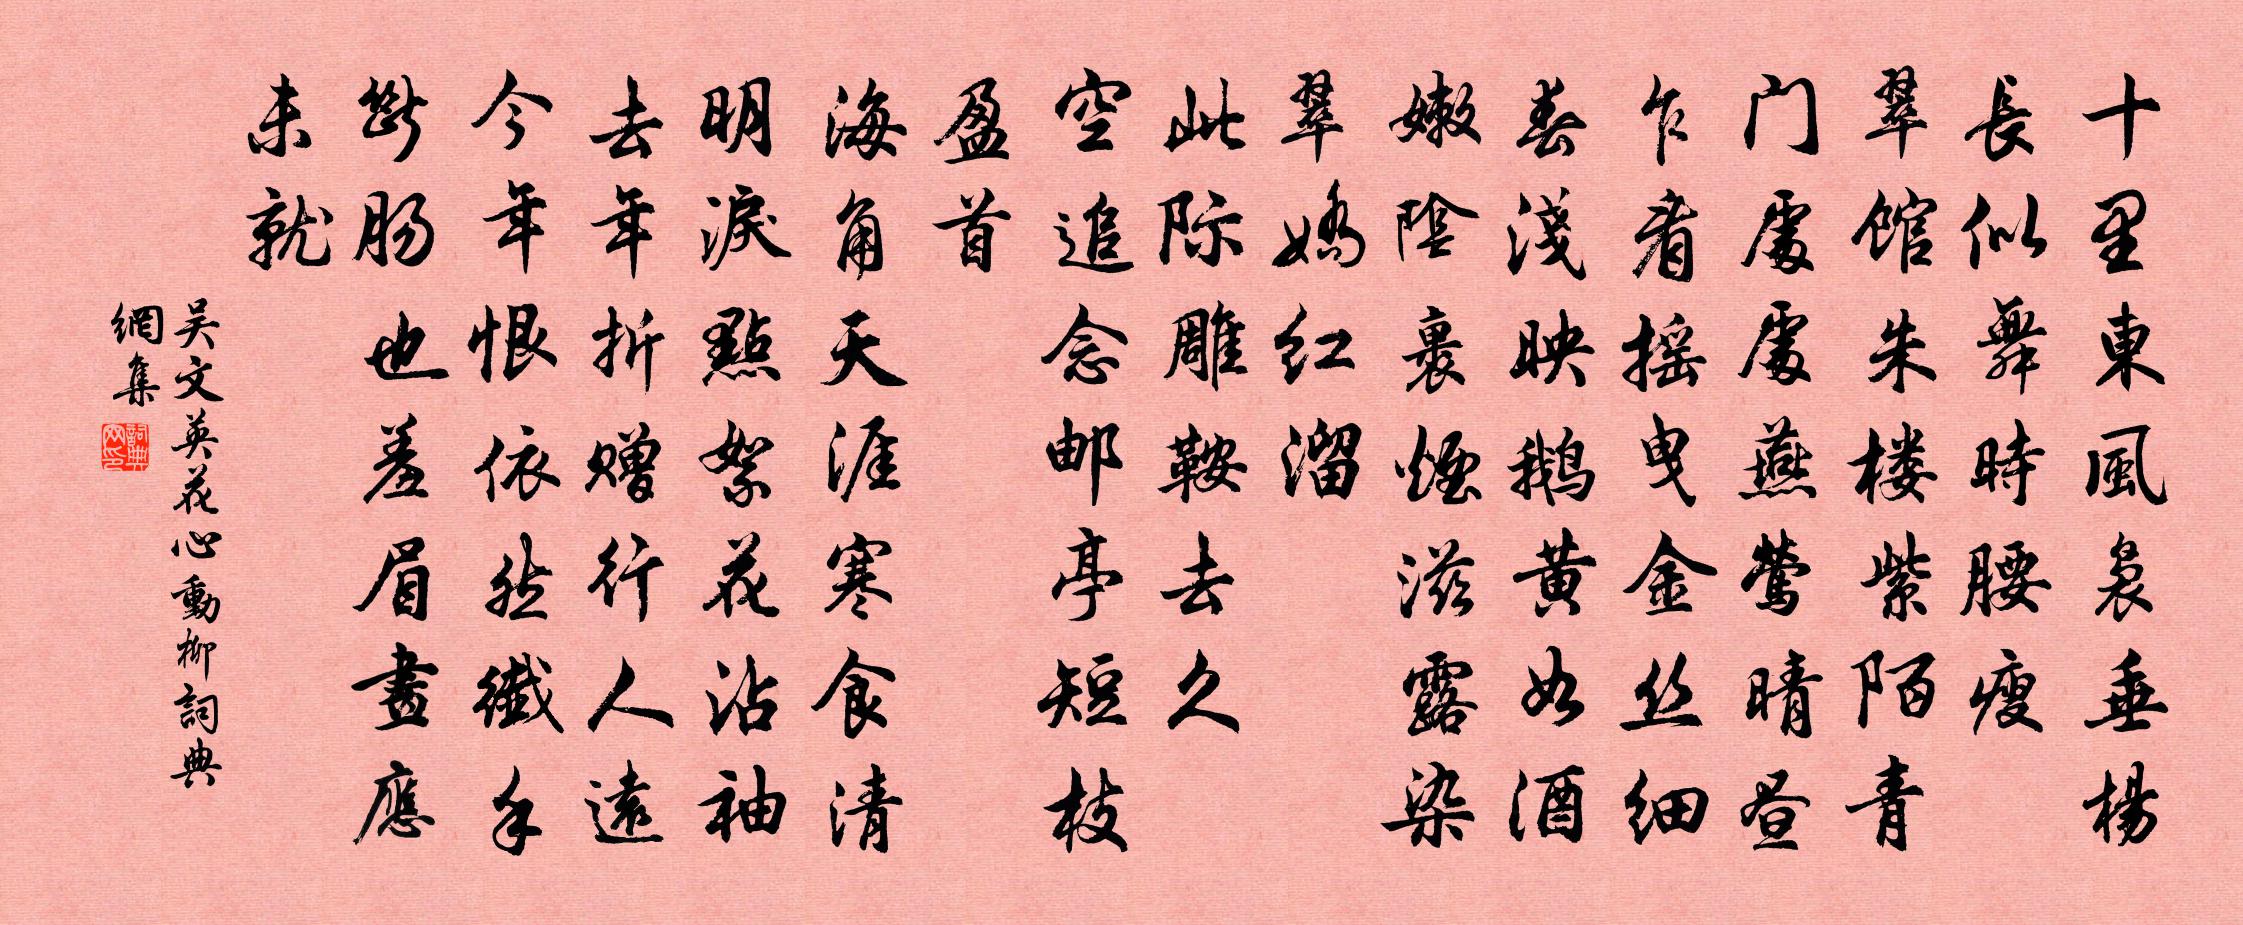 十里東風裊垂楊
長似舞時腰瘦
翠館朱楼紫陌青
门處處燕鶯晴昼
乍看摇曳金丝细
春淺映鹅黄如酒
嫩陰裹煙滋露染
翠嬌红溜
此际雕鞍去久
空追念邮亭短枝
盈首
海角天涯寒食清
明淚點絮花沾袖
去年折赠行人遠
今年恨依然纖手
斷肠也羞眉畫應
未就
吴文英花心動柳詞典
網集
詞典
网印